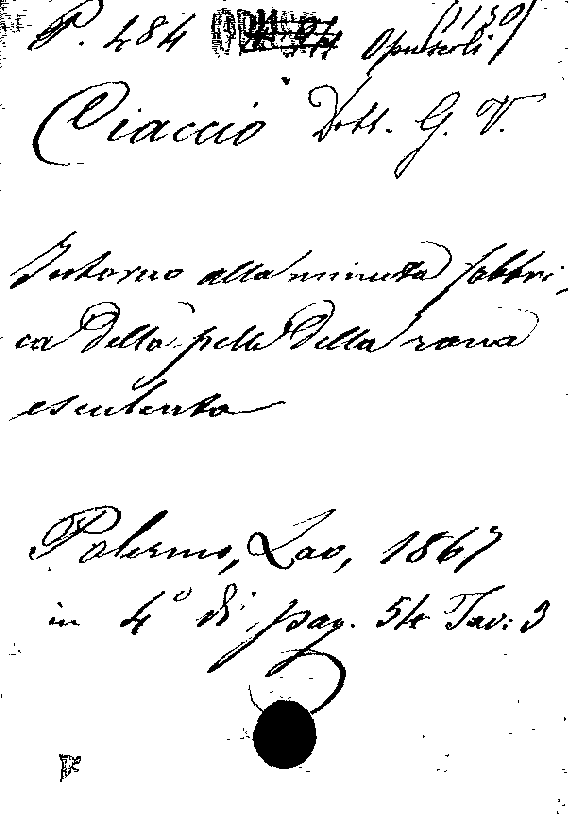 P. 484 Opuscoli
Ciaccio Dott. G. V.
Intorno alla minuta fabbri-
ca della pelle della rana
esculenta
Palermo, Lao, 1867
in 4° di pag. 54 Tav: 3